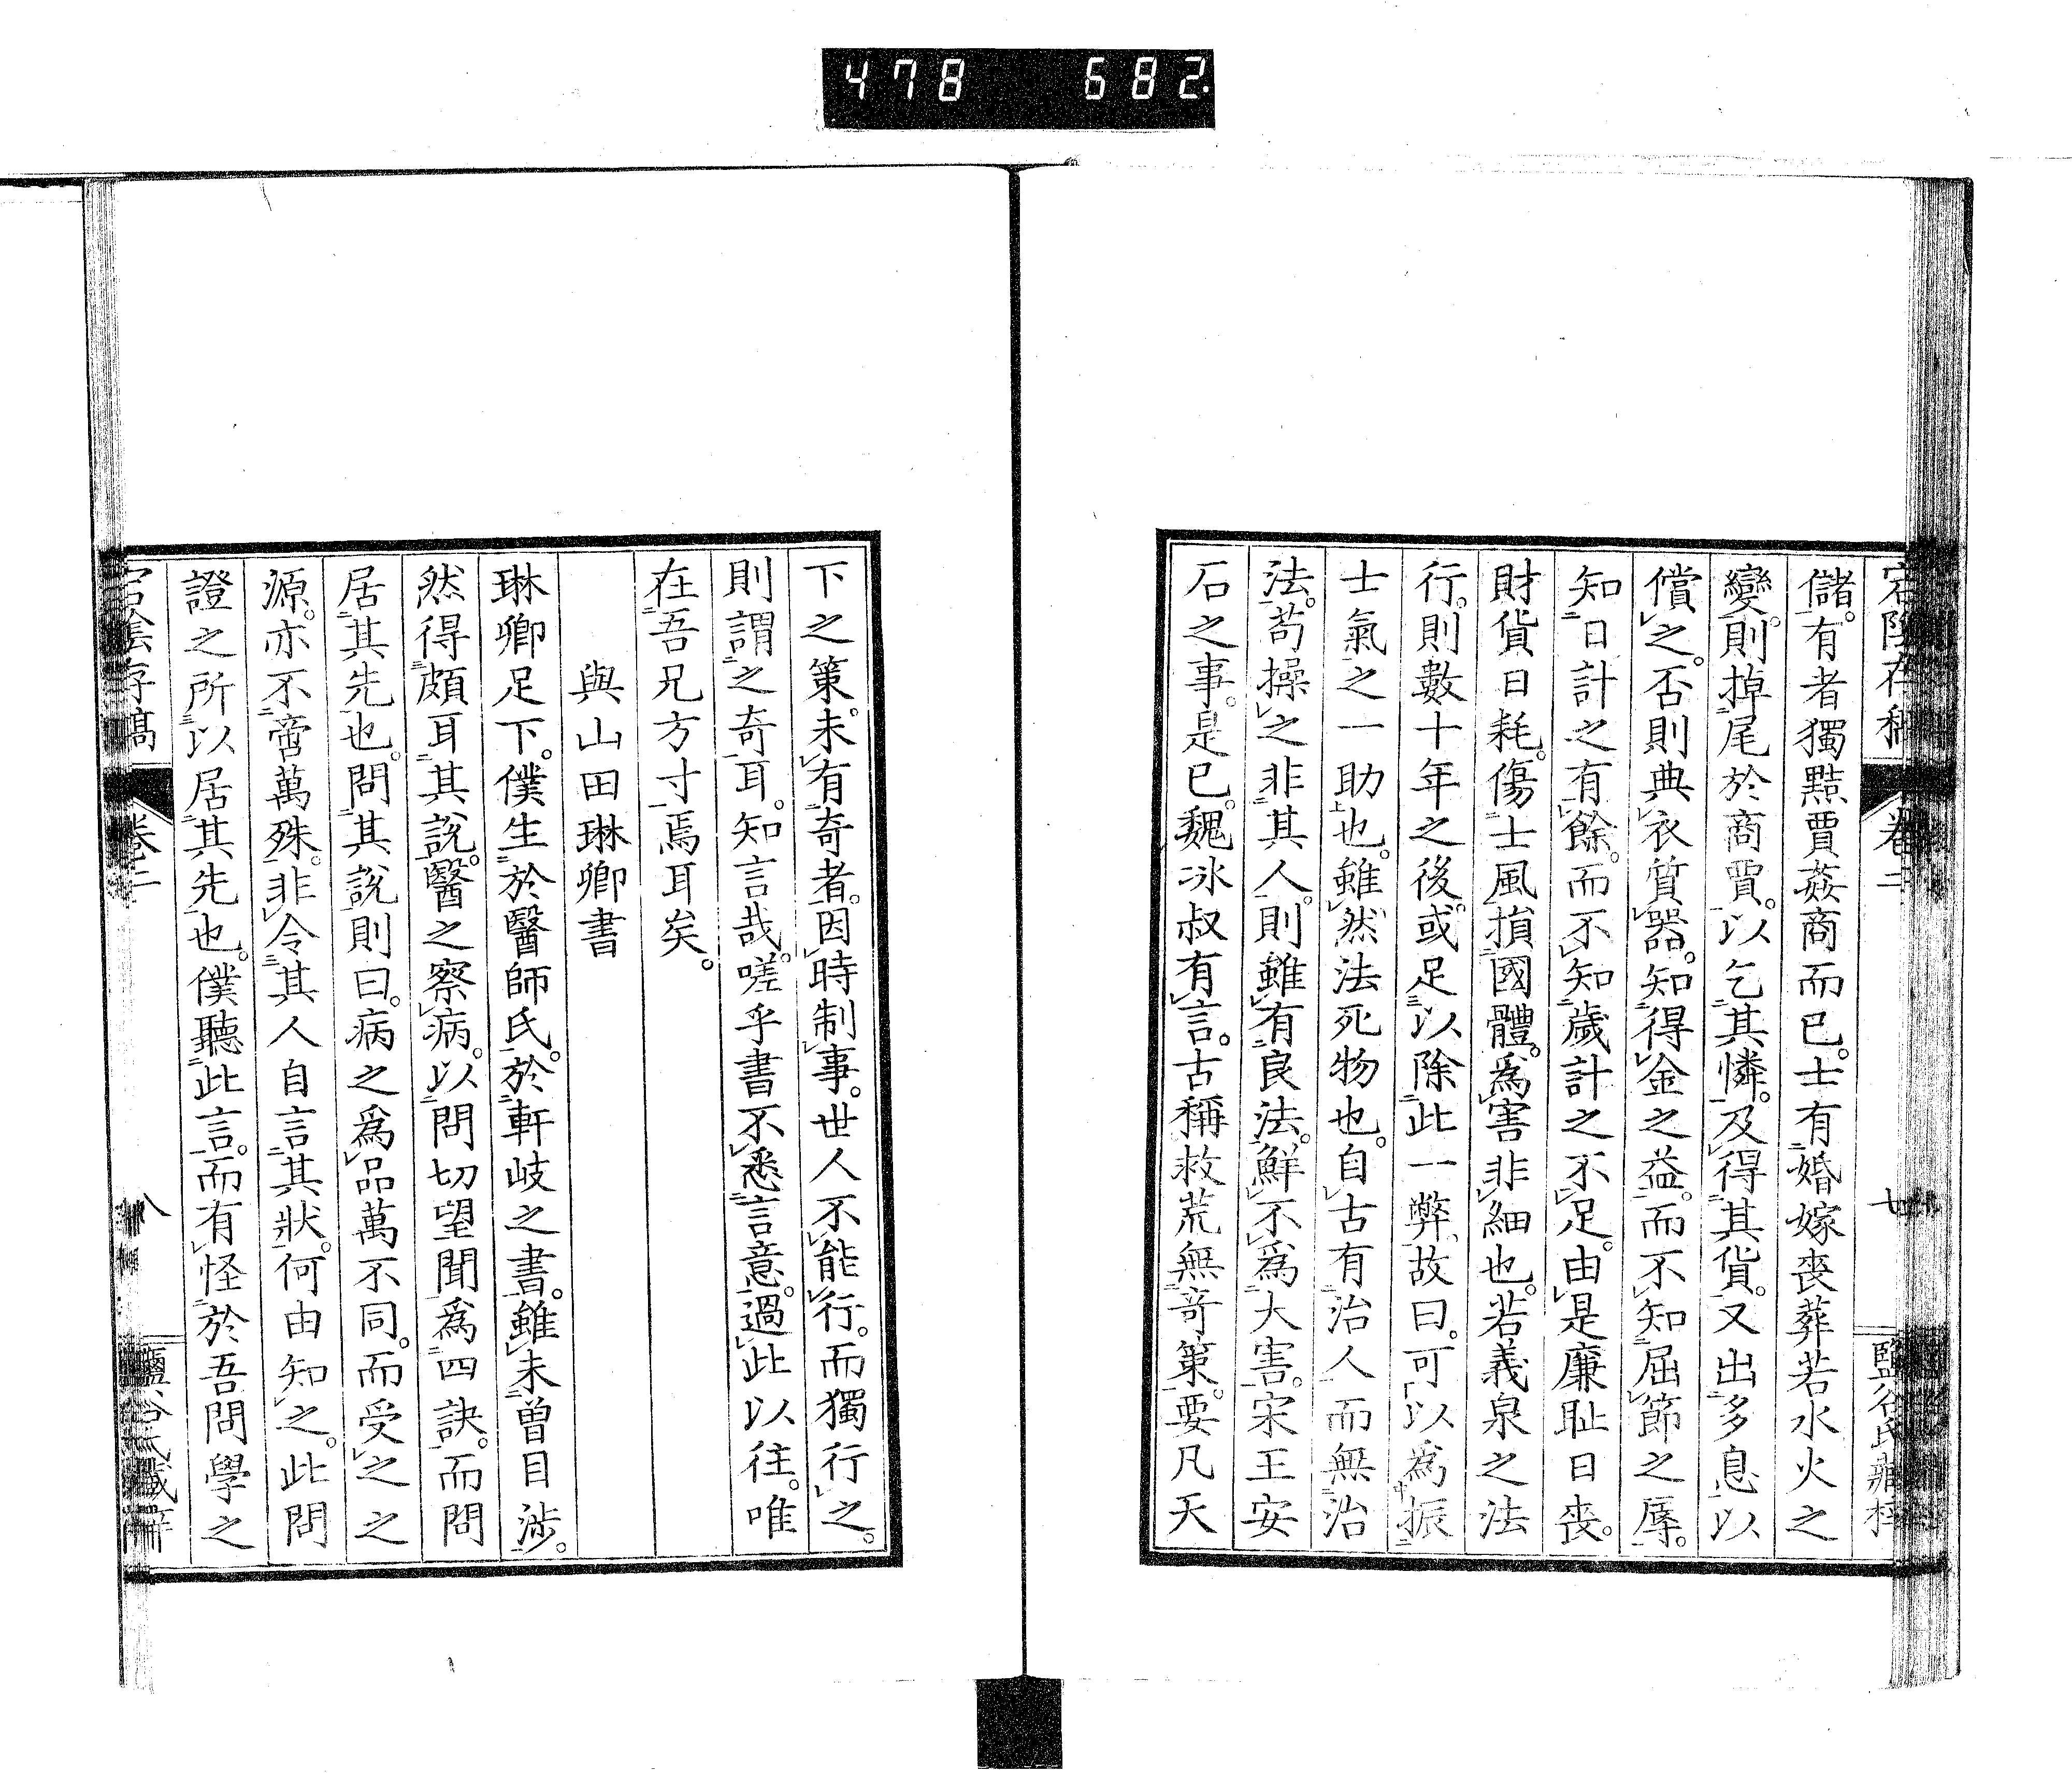 478 682.
宕陰存稿 卷二 七 鹽谷氏藏梓
儲。有者獨黠賈姦商而已。士有婚嫁喪葬若水火之
變。則掉尾於商賈。以乞其憐。及得其貨。又出多息以
償之。否則典衣質器。知得金之益。而不知屈節之辱。
知日計之有餘。而不知歲計之不足。由是廉耻日喪。
財貨日耗。傷士風損國體。爲害非細也。若義泉之法
行。則數十年之後。或足以除此一弊。故曰。可以爲振
士氣之一助也。雖然法死物也。自古有治人而無治
法。苟操之非其人。則雖有良法。鮮不爲大害。宋王安
石之事。是已。魏冰叔有言。古稱救荒無奇策。要凡天
下之策。未有奇者。因時制事。世人不能行。而獨行之。
則謂之奇耳。知言哉。嗟乎書不悉言意。過此以往。唯
在吾兄方寸焉耳矣。
與山田琳卿書
琳卿足下。僕生於醫師氏。於軒岐之書。雖未曾目涉。
然得頗耳其說。醫之察病。以問切望聞爲四訣。而問
居其先也。問其說則曰。病之爲品萬不同。而受之之
源。亦不啻萬殊。非令其人自言其狀。何由知之。此問
證之所以居其先也。僕聽此言。而有怪於吾問學之
宕陰存稿 卷二 八 鹽谷氏藏梓